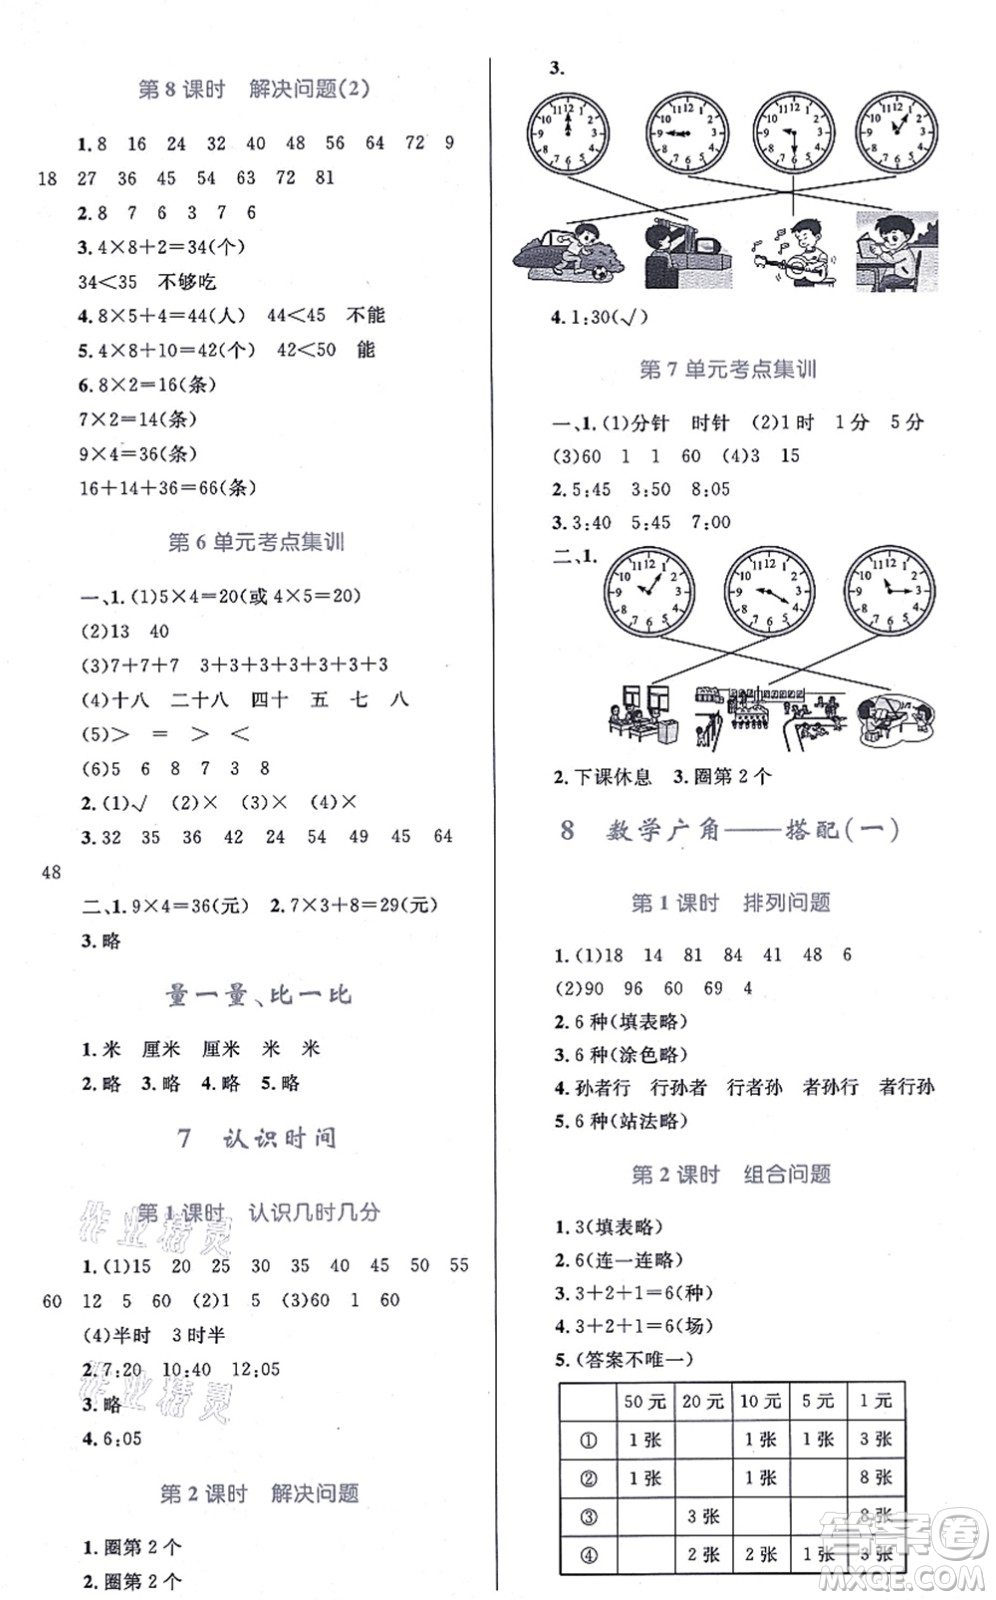 第8课时　解决问题(2)
1.8　16　24　32　40　48　56　64　72　9
18　27　36　45　54　63　72　81
2.8　7　6　3　7　6
3.4×8+2=34(个)
34<35　不够吃
4.8×5+4=44(人)　44<45　不能
5.4×8+10=42(个)　42<50　能
6.8×2=16(条)
7×2=14(条)
9×4=36(条)
16+14+36=66(条)
第6单元考点集训
一、1.(1)5×4=20(或4×5=20)
(2)13　40
(3)7+7+7　3+3+3+3+3+3+3
(4)十八　二十八　四十　五　七　八
(5)>　=　>　<
(6)5　6　8　7　3　8
2.(1)√　(2)×　(3)×　(4)×
3.32　35　36　42　24　54　49　45　64
48
二、1.9×4=36(元)　2.7×3+8=29(元)
3.略
量一量、比一比
1.米　厘米　厘米　米　米
2.略　3.略　4.略　5.略
7　认识时间
第1课时　认识几时几分
1.(1)15　20　25　30　35　40　45　50　55
60　12　5　60　(2)1　5　(3)60　1　60
(4)半时　3时半
2.7:20　10:40　12:05
3.略
4.6:05
第2课时　解决问题
1.圈第2个
2.圈第2个
3.
4.1:30(√)
第7单元考点集训
一、1.(1)分针　时针　(2)1时　1分　5分
(3)60　1　1　60　(4)3　15
2.5:45　3:50　8:05
3.3:40　5:45　7:00
二、1.
2.下课休息　3.圈第2个
8　数学广角——搭配(一)
第1课时　排列问题
1.(1)18　14　81　84　41　48　6
(2)90　96　60　69　4
2.6种(填表略)
3.6种(涂色略)
4.孙者行　行孙者　行者孙　者孙行　者行孙
5.6种(站法略)
第2课时　组合问题
1.3(填表略)
2.6(连一连略)
3.3+2+1=6(种)
4.3+2+1=6(场)
5.(答案不唯一)
50元　20元　10元　5元　1元
①　1张　1张　1张　3张
②　1张　1张　8张
③　3张　8张
④　2张　2张　1张　3张
作业精灵
作业精灵
答案卷
MXQE.COM